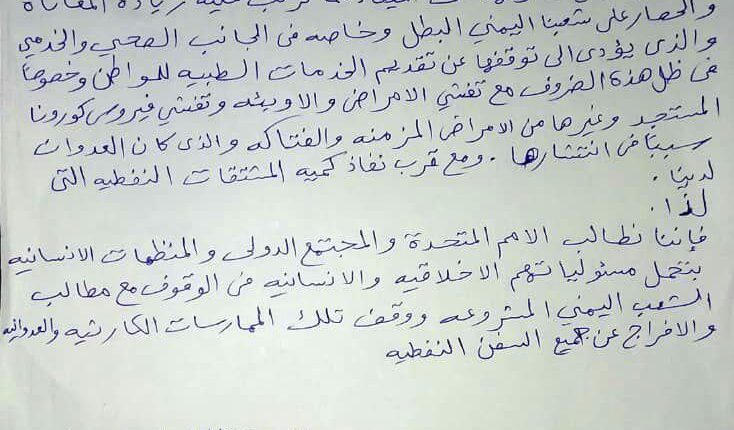 زيادة المعاناة
والحصار على شعبنا اليمني البطل وخاصه في الجانب الصحي والخدمي
والذى يؤدى الى توقفها عن تقديم الخدمات الطبيه للمواطن وخصوصاً
فى ظل هذة الضروف مع تفشي الامراض والاوبئه وتفشي فيروس كورونا
المستجد وغيرها من الامراض المزمنه والفتاكه والذى كان العدوان
سبباً فى انتشارها . ومع قرب نفاذ كميه المشتقات النفطيه التى
لدينا .
لذا .
فإننا نطالب الامم المتحدة والمجتمع الدولى والمنظمات الانسانيه
بتحمل مسئولياتهم الاخلاقيه والانسانيه فى الوقوف مع مطالب
الشعب اليمني المشروعه ووقف تلك الممارسات الكارثيه والعدوانيه
والافراج عن جميع السفن النفطيه